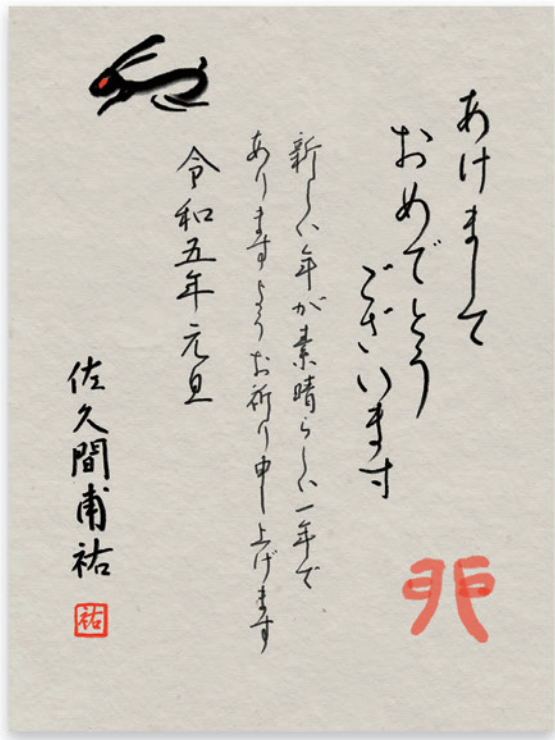 あけまして
おめでとう
ございます
新しい年が素晴らしい一年で
ありますようお祈り申し上げます
令和五年元旦
佐久間甫祐
祐
卯